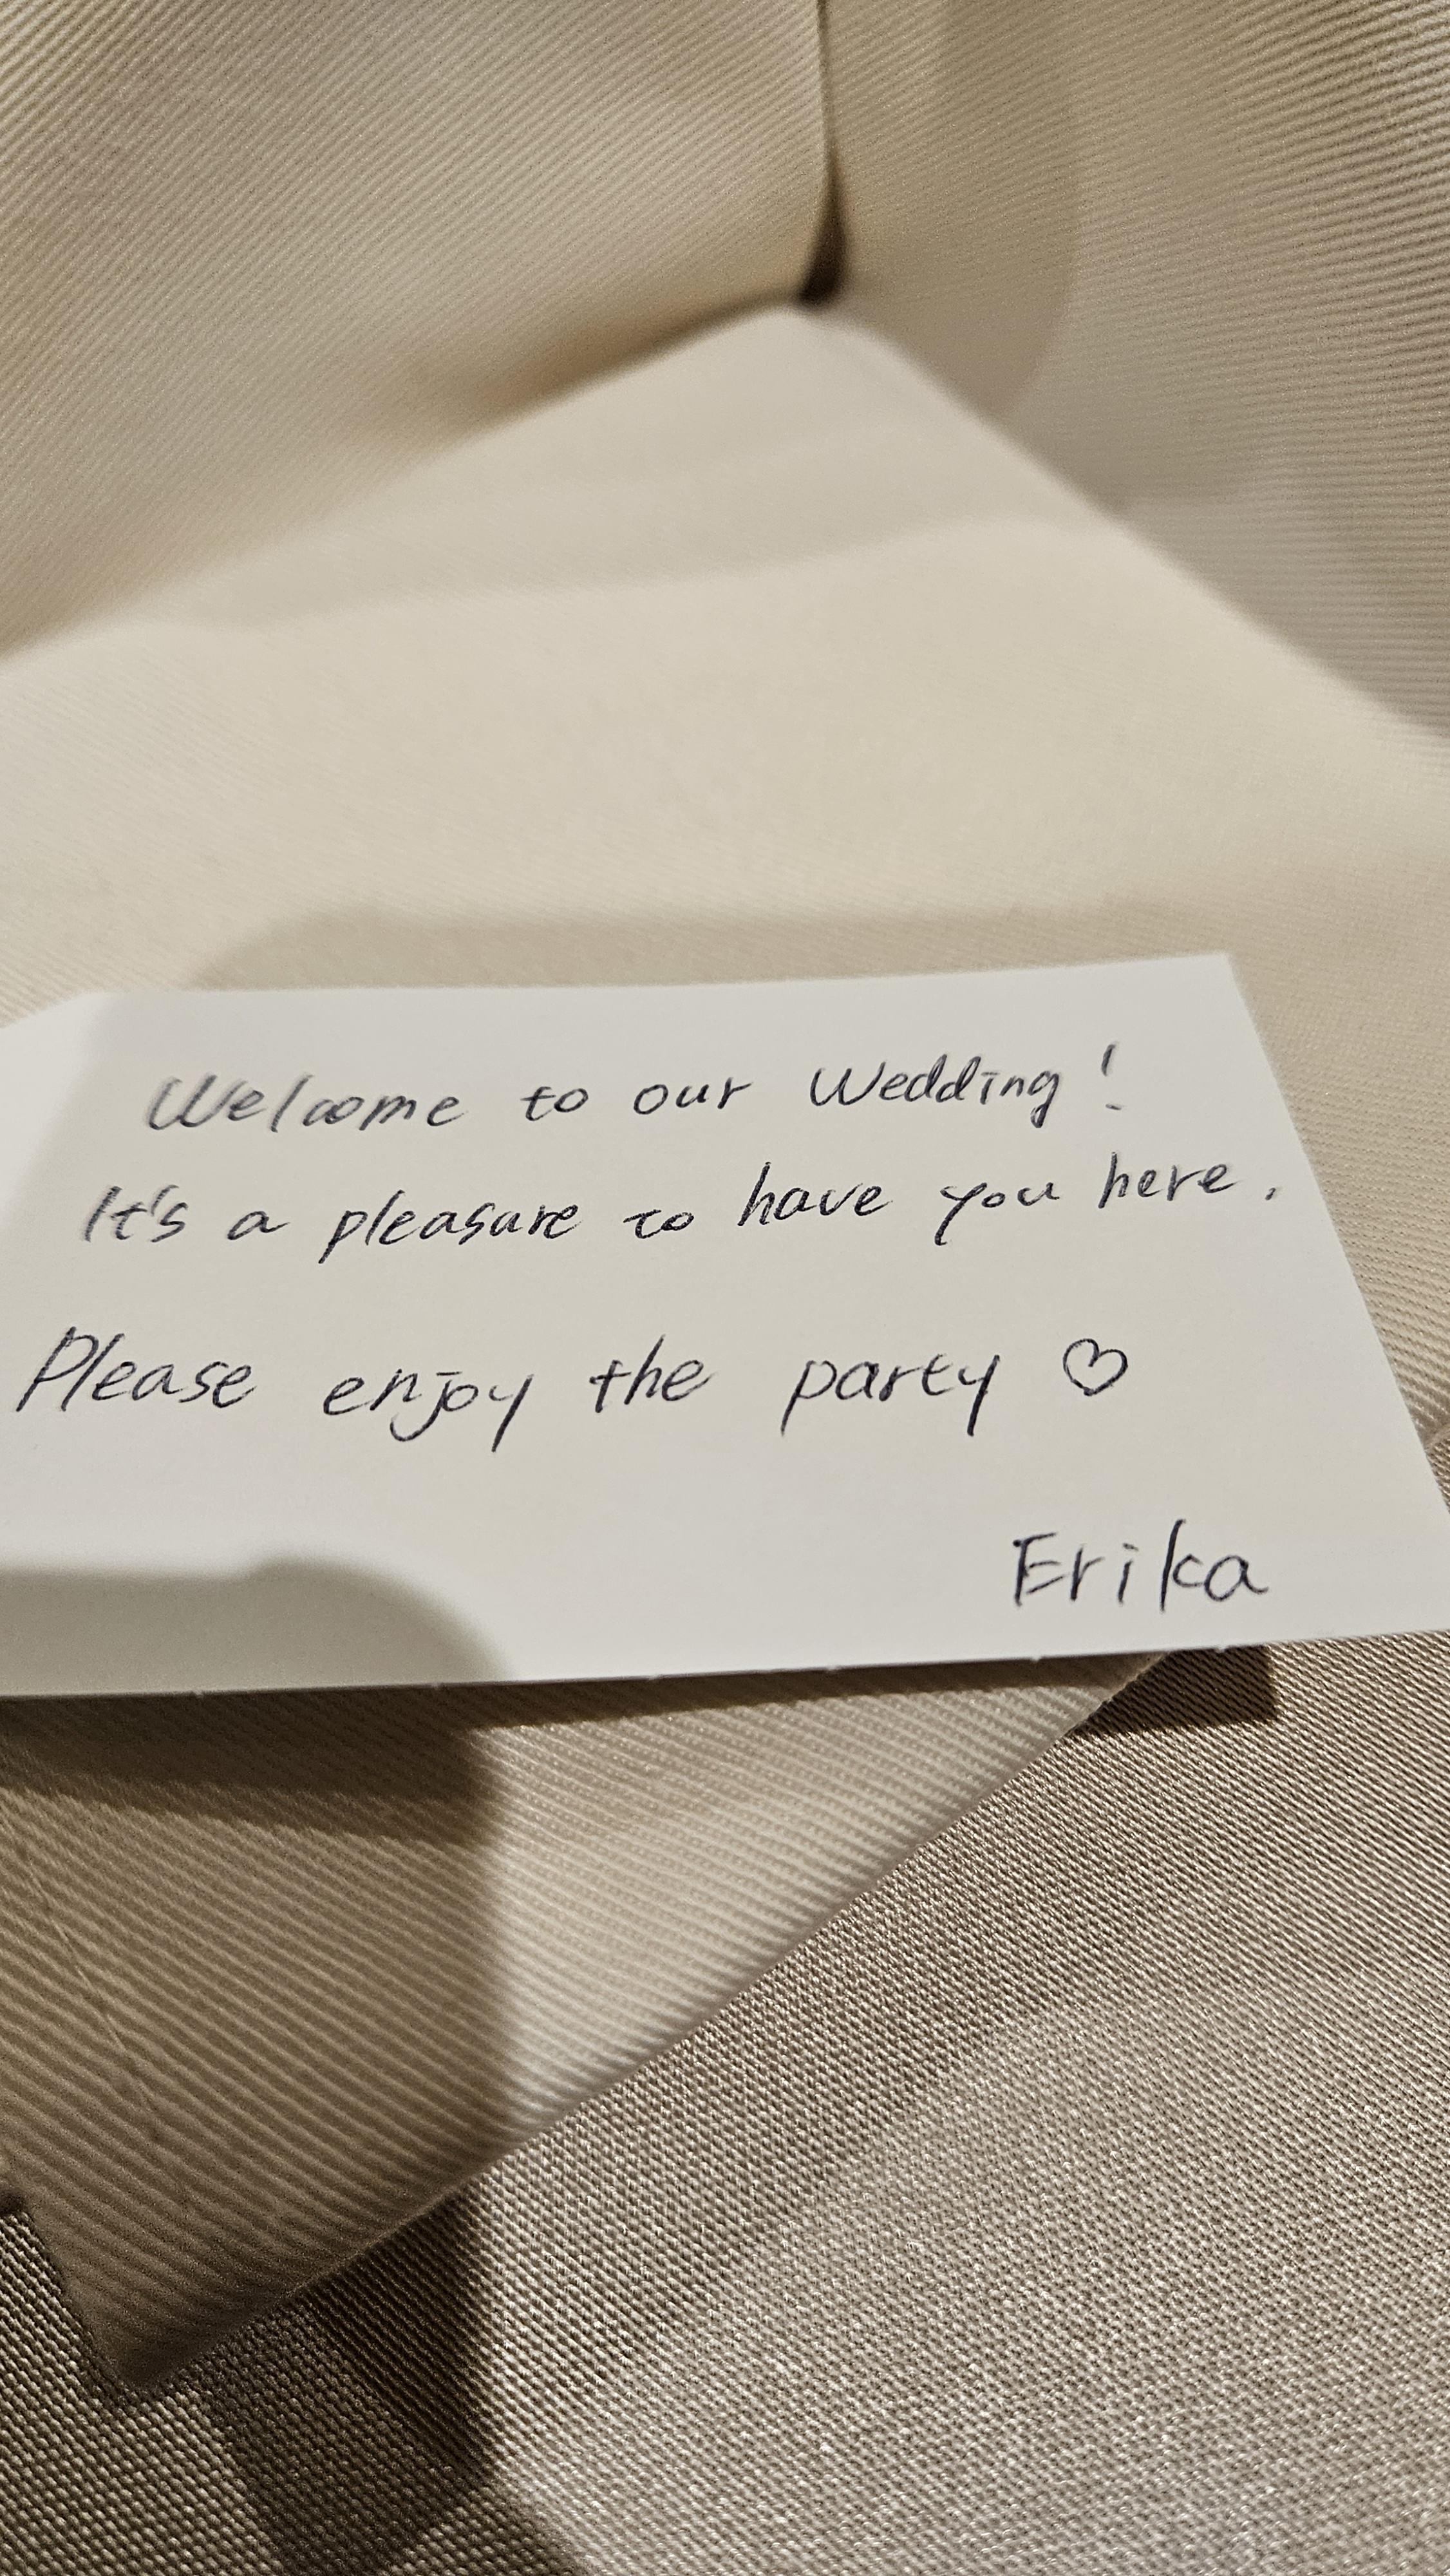 Welcome to our Wedding!
It's a pleasure to have you here.
Please enjoy the party ♡
Erika